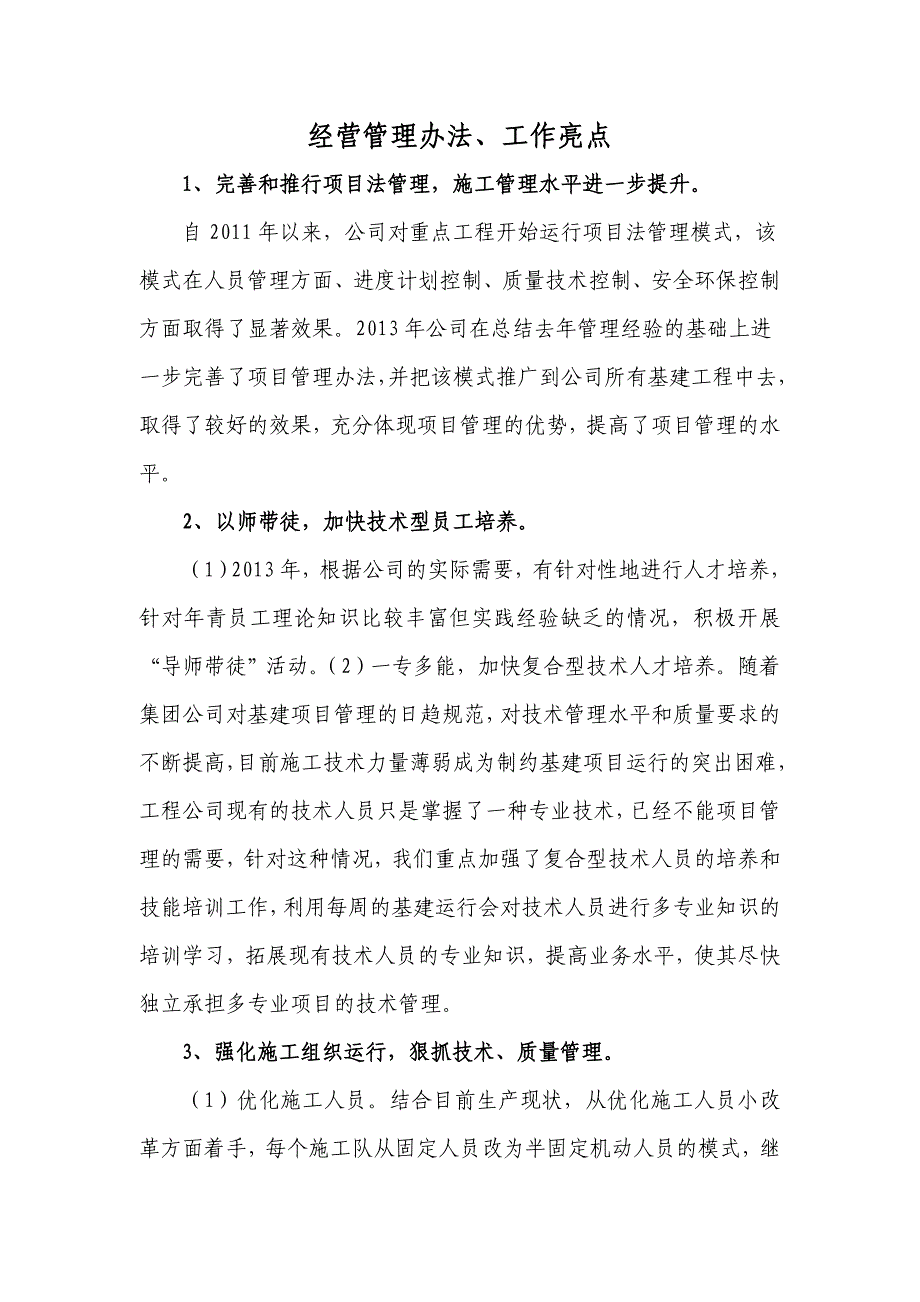 经营管理办法、工作亮点
1、完善和推行项目法管理，施工管理水平进一步提升。
自 2011 年以来，公司对重点工程开始运行项目法管理模式，该
模式在人员管理方面、进度计划控制、质量技术控制、安全环保控制
方面取得了显著效果。2013 年公司在总结去年管理经验的基础上进
一步完善了项目管理办法，并把该模式推广到公司所有基建工程中去，
取得了较好的效果，充分体现项目管理的优势，提高了项目管理的水
平。
2、以师带徒，加快技术型员工培养。
（1）2013 年，根据公司的实际需要，有针对性地进行人才培养，
针对年青员工理论知识比较丰富但实践经验缺乏的情况，积极开展
“导师带徒”活动。（2）一专多能，加快复合型技术人才培养。随着
集团公司对基建项目管理的日趋规范，对技术管理水平和质量要求的
不断提高，目前施工技术力量薄弱成为制约基建项目运行的突出困难，
工程公司现有的技术人员只是掌握了一种专业技术，已经不能项目管
理的需要，针对这种情况，我们重点加强了复合型技术人员的培养和
技能培训工作，利用每周的基建运行会对技术人员进行多专业知识的
培训学习，拓展现有技术人员的专业知识，提高业务水平，使其尽快
独立承担多专业项目的技术管理。
3、强化施工组织运行，狠抓技术、质量管理。
（1）优化施工人员。结合目前生产现状，从优化施工人员小改
革方面着手，每个施工队从固定人员改为半固定机动人员的模式，继